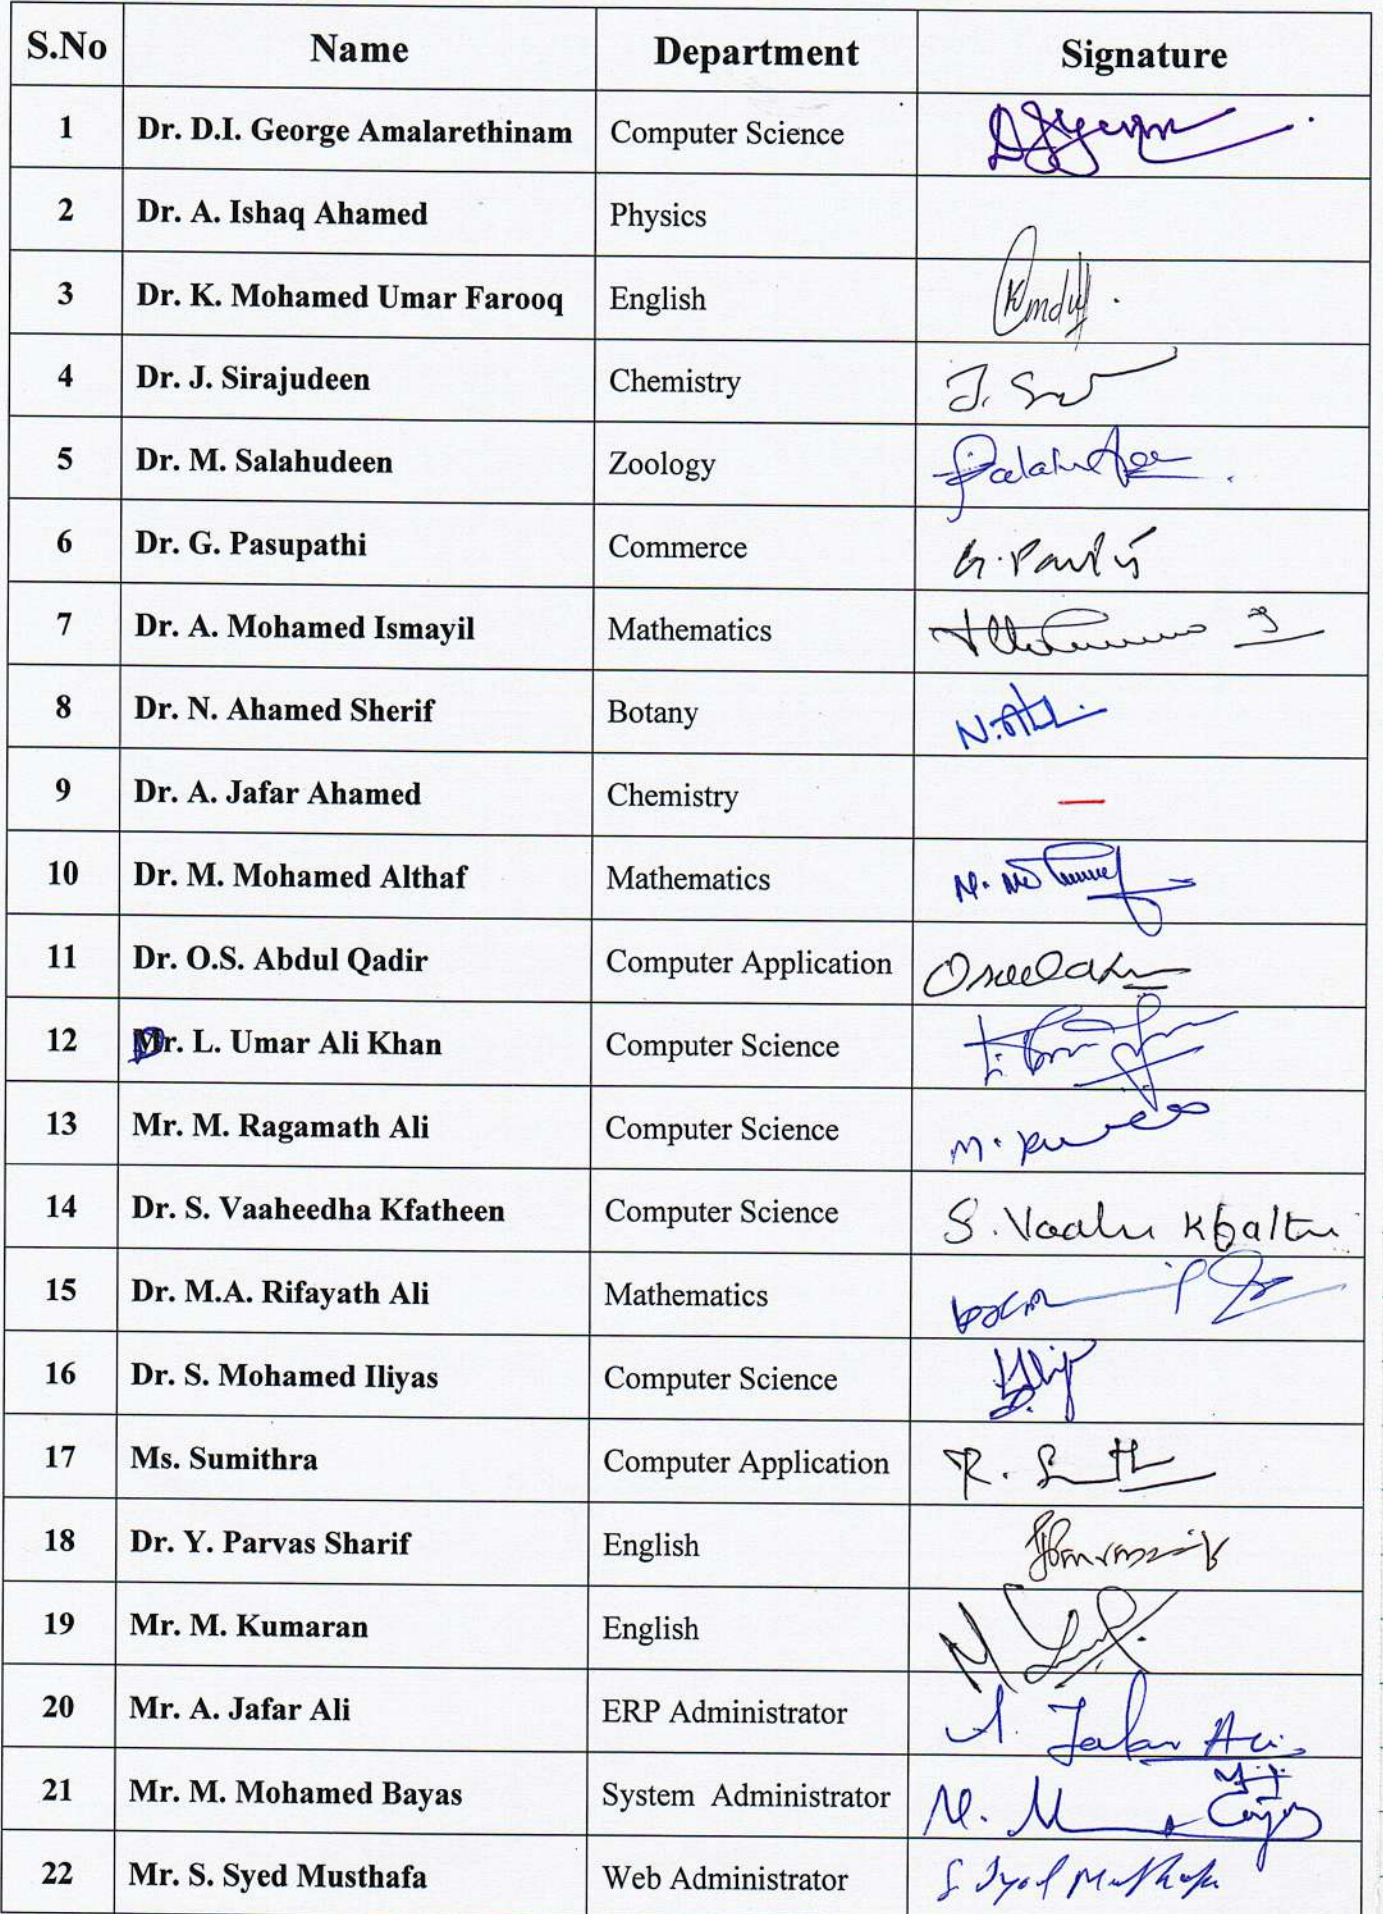 S.No Name Department Signature
1 Dr. D.I. George Amalarethinam Computer Science
2 Dr. A. Ishaq Ahamed Physics
3 Dr. K. Mohamed Umar Farooq English
4 Dr. J. Sirajudeen Chemistry J.
5 Dr. M. Salahudeen Zoology
6 Dr. G. Pasupathi Commerce
7 Dr. A. Mohamed Ismayil Mathematics
8 Dr. N. Ahamed Sherif Botany
9 Dr. A. Jafar Ahamed Chemistry —
10 Dr. M. Mohamed Althaf Mathematics
11 Dr. O.S. Abdul Qadir Computer Application
12 Dr. L. Umar Ali Khan Computer Science
13 Mr. M. Ragamath Ali Computer Science M.
14 Dr. S. Vaaheedha Kfatheen Computer Science S.
15 Dr. M.A. Rifayath Ali Mathematics
16 Dr. S. Mohamed Iliyas Computer Science
17 Ms. Sumithra Computer Application R.
18 Dr. Y. Parvas Sharif English
19 Mr. M. Kumaran English
20 Mr. A. Jafar Ali ERP Administrator A. Jafar Ali
21 Mr. M. Mohamed Bayas System Administrator M.
22 Mr. S. Syed Musthafa Web Administrator S. Syed Musthafa